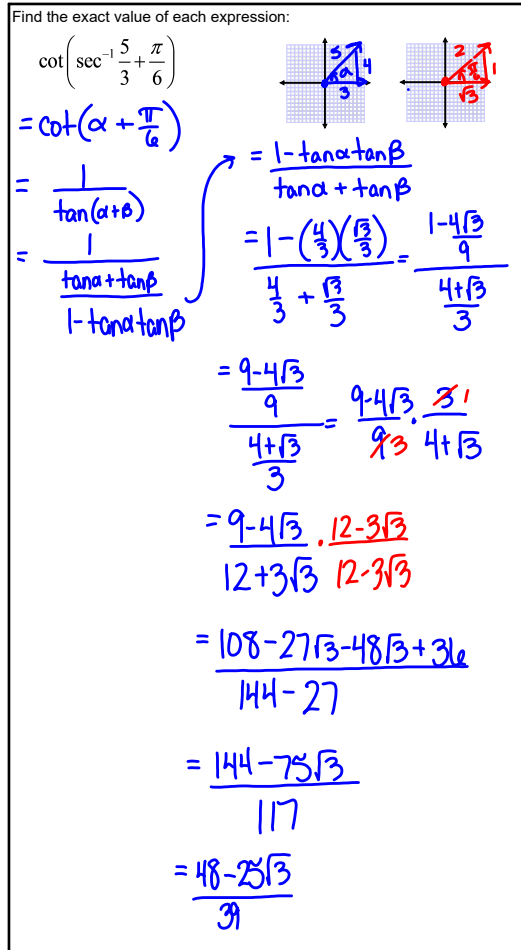 Find the exact value of each expression:
cot(sec⁻¹ 5/3 + π/6)
5 4 α 3
2 1 π/6 √3
= cot(α + π/6)
= 1/tan(α+β)
= 1/((tanα+tanβ)/(1-tanαtanβ))
= (1-tanαtanβ)/(tanα+tanβ)
= (1-(4/3)(√3/3))/(4/3 + √3/3) = ((1-4√3)/9)/((4+√3)/3)
= ((9-4√3)/9)/((4+√3)/3) = (9-4√3)/9 3 · 3 1/(4+√3)
= (9-4√3)/(12+3√3) · (12-3√3)/(12-3√3)
= (108-27√3-48√3+36)/(144-27)
= (144-75√3)/117
= (48-25√3)/39